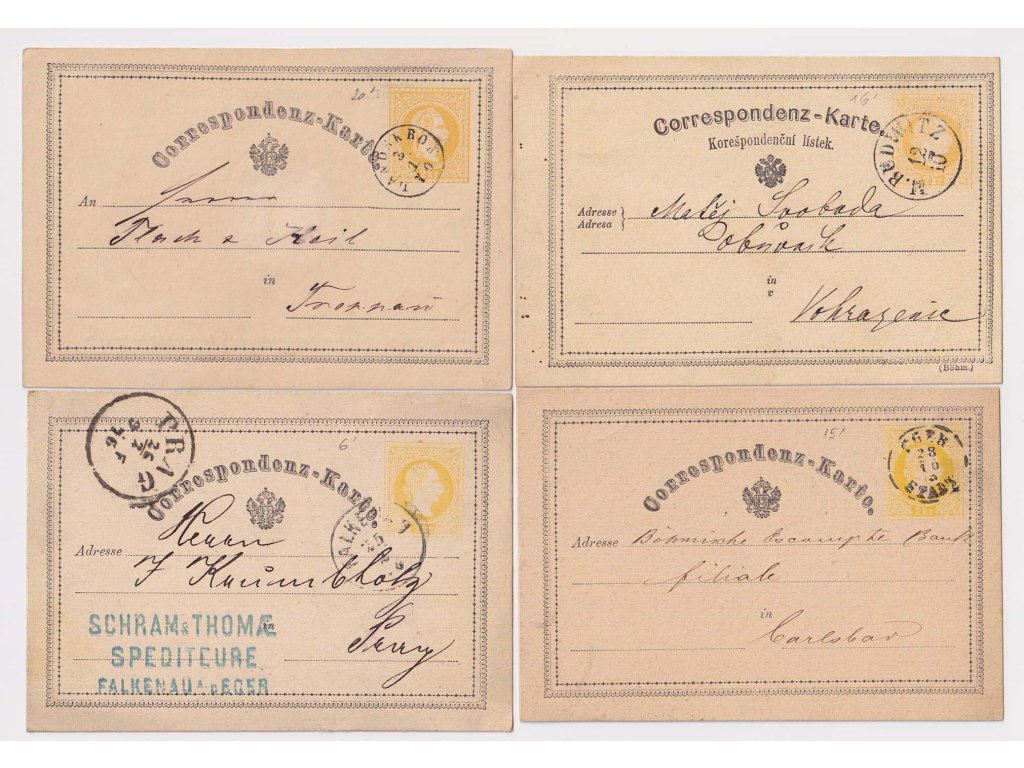 20'
Correspondenz-Karte.
LANDSKRON
An
Flach & Keil
in
Troppau
16'
Correspondenz-Karte.
Korešpondenční lístek.
M. BUDWITZ
12
10
Adresse
Adresa
Matěj Svoboda
in
v
(Böhm.)
PRAG
6'
Correspondenz-Karte.
FALKENAU
Adresse
Herrn
SCHRAM & THOMÆ
in
SPEDITEURE
Prag
FALKENAU A. D EGER
15'
Correspondenz-Karte.
EGER
23
10
STADT
Adresse
Böhmische Escompte Bank
filiale
in
Carlsbad